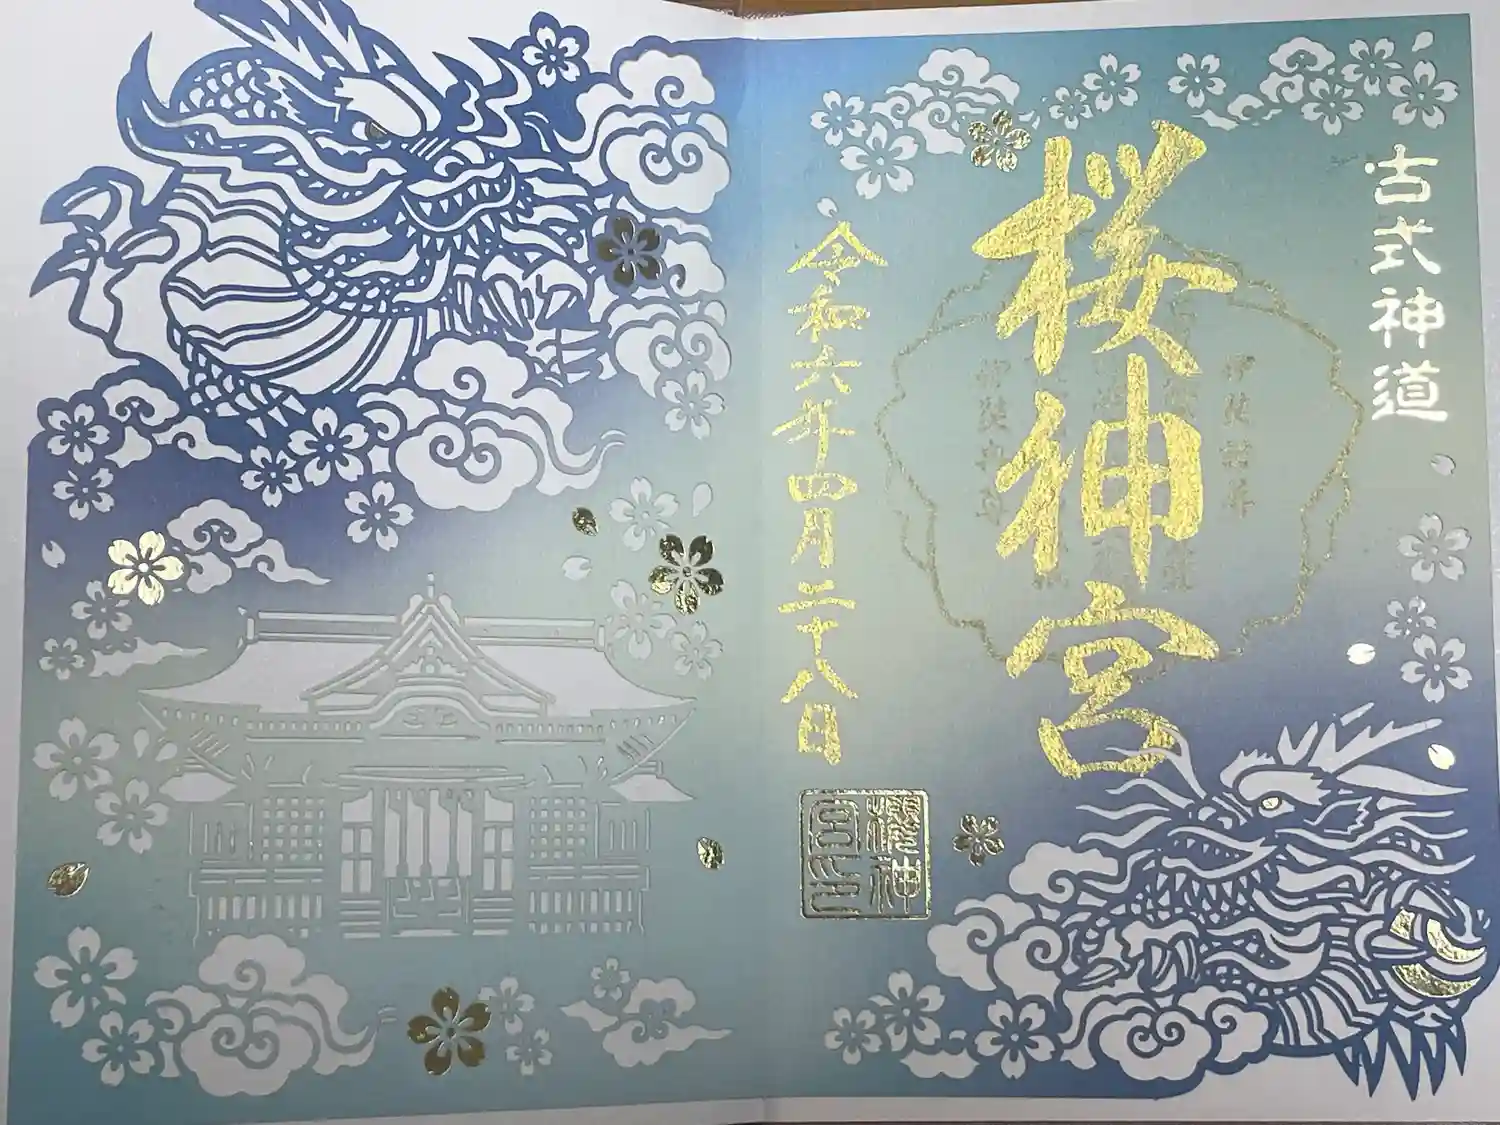 古式神道
桜神宮
令和六年四月二十八日
櫻神
宮印